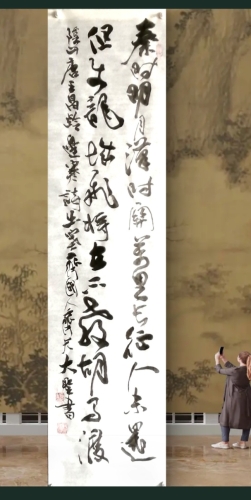 秦时明月漢时關萬里長征人未還
但使龍城飛將在不教胡馬渡
陰山唐王昌齡邊塞詩
大墅書